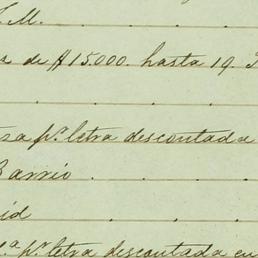 S.M.
de $15.000. hasta 19.
pr. letra descontada
Barrio
id
pr. letra descontada en